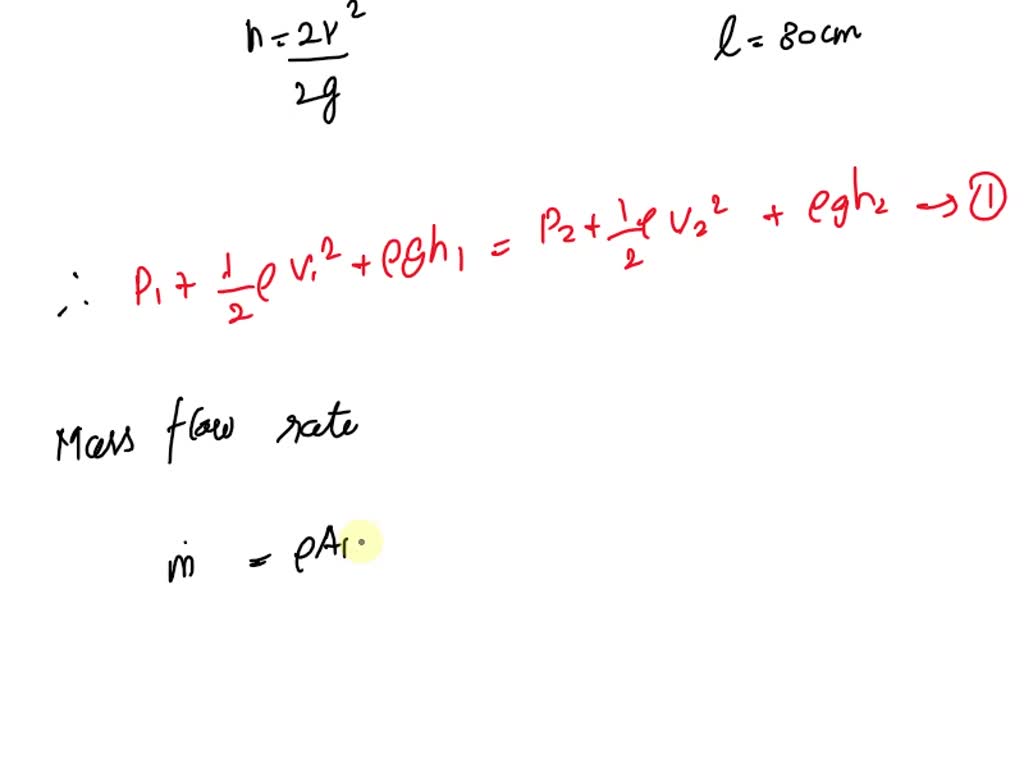 h = 2v² / 2g
l = 80cm
∴ P₁ + 1/2 ρ v₁² + ρgh₁ = P₂ + 1/2 ρ v₂² + ρgh₂ → ①
Mass flow rate
ṁ = ρA₁